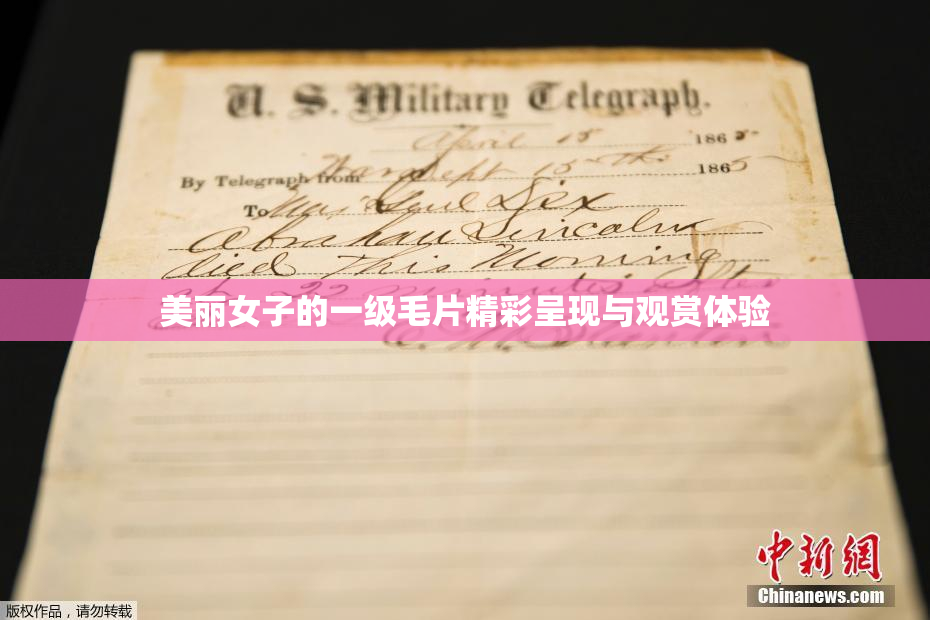 U. S. Military Telegraph.
April 15 1865
By Telegraph from War Dept 15th 1865
To Maj Genl Dix
Abraham Lincoln
died This Morning
at 22 minutes after
美丽女子的一级毛片精彩呈现与观赏体验
E. M. Stanton
中新网
Chinanews.com
版权作品,请勿转载